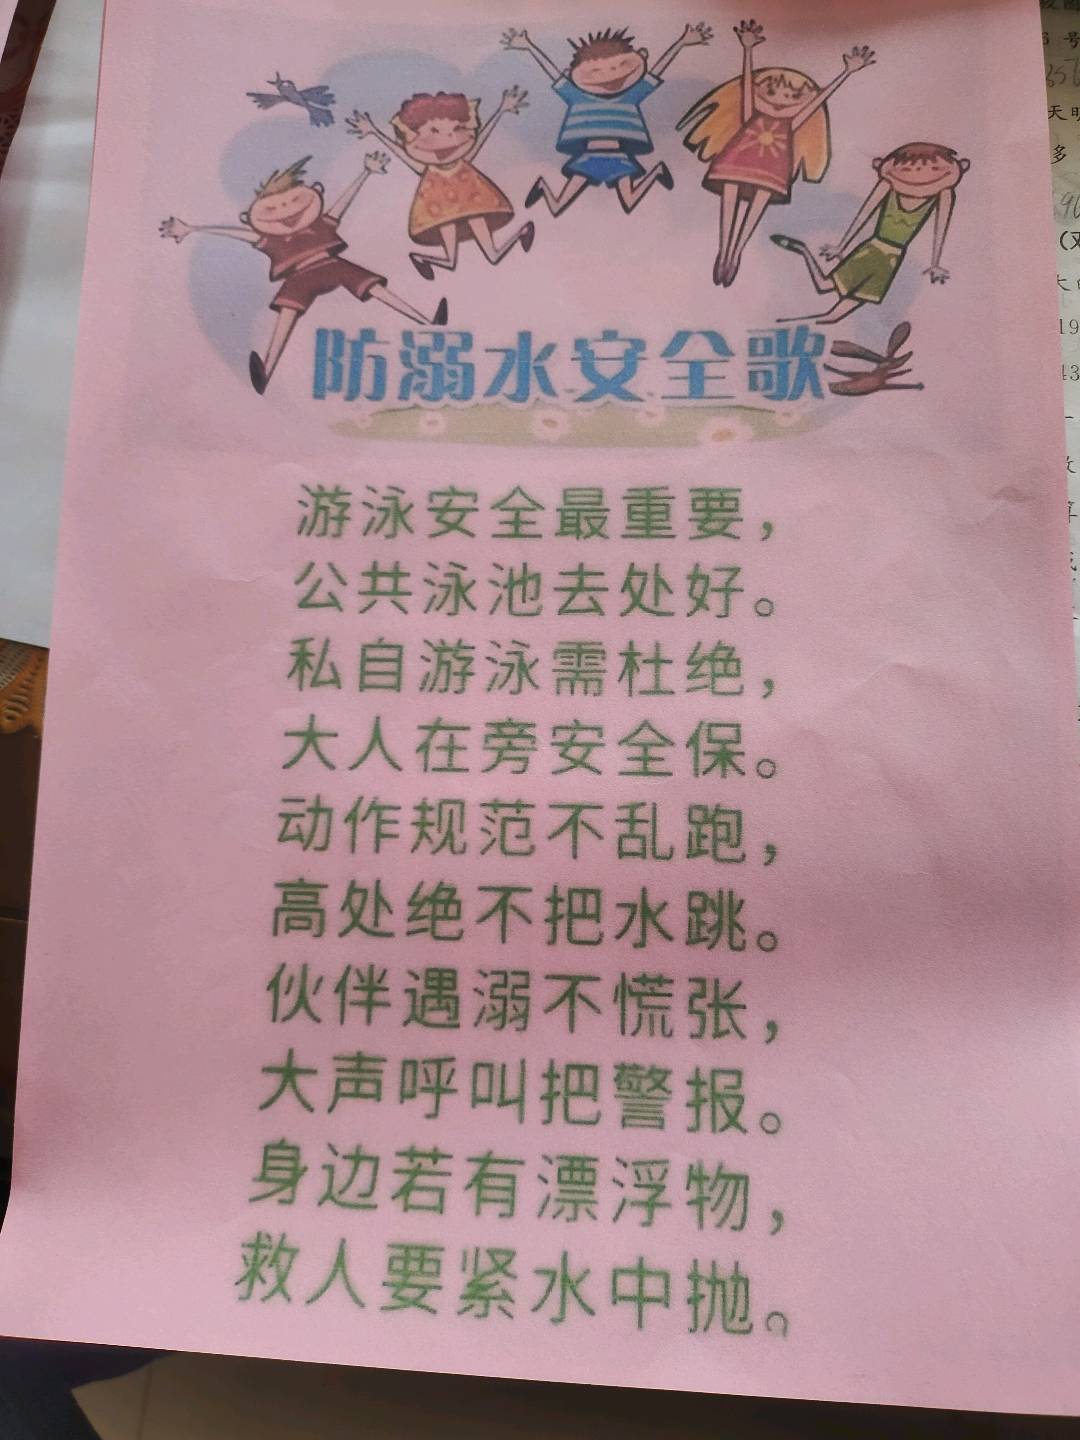 防溺水安全歌
游泳安全最重要，
公共泳池去处好。
私自游泳需杜绝，
大人在旁安全保。
动作规范不乱跑，
高处绝不把水跳。
伙伴遇溺不慌张，
大声呼叫把警报。
身边若有漂浮物，
救人要紧水中抛。
号
天明
多
19
43